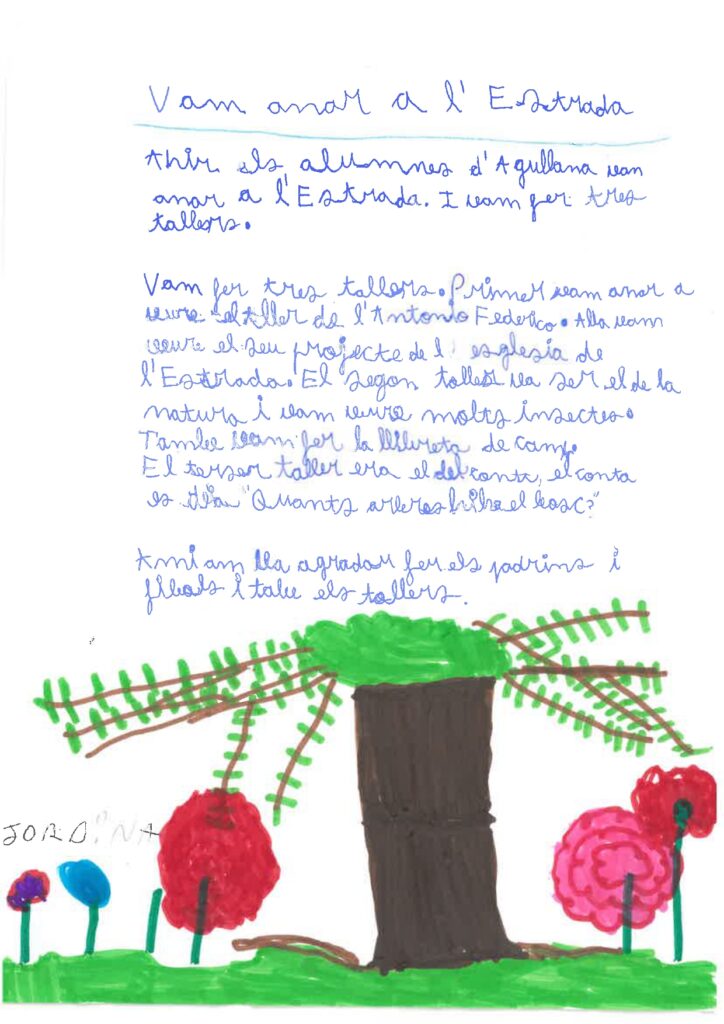 Vam anar a l'Estrada
Ahir els alumnes d'Agullana van
anar a l'Estrada. I vam fer tres
tallers.
Vam fer tres tallers. Primer vam anar a
veure el taller de l'Antonio Federico. Alla vam
veure el seu projecte de l'esglesia de
l'Estrada. El segon taller va ser el de la
natura i vam veure molts insectes.
Tambe vam fer la llibreta de camp.
El terser taller era el del conta, el conta
es dia "Quants arbres hi ha el bosc?"
A mi am lla agradar fer els padrins i
fillols i tabe els tallers.
JORDINA